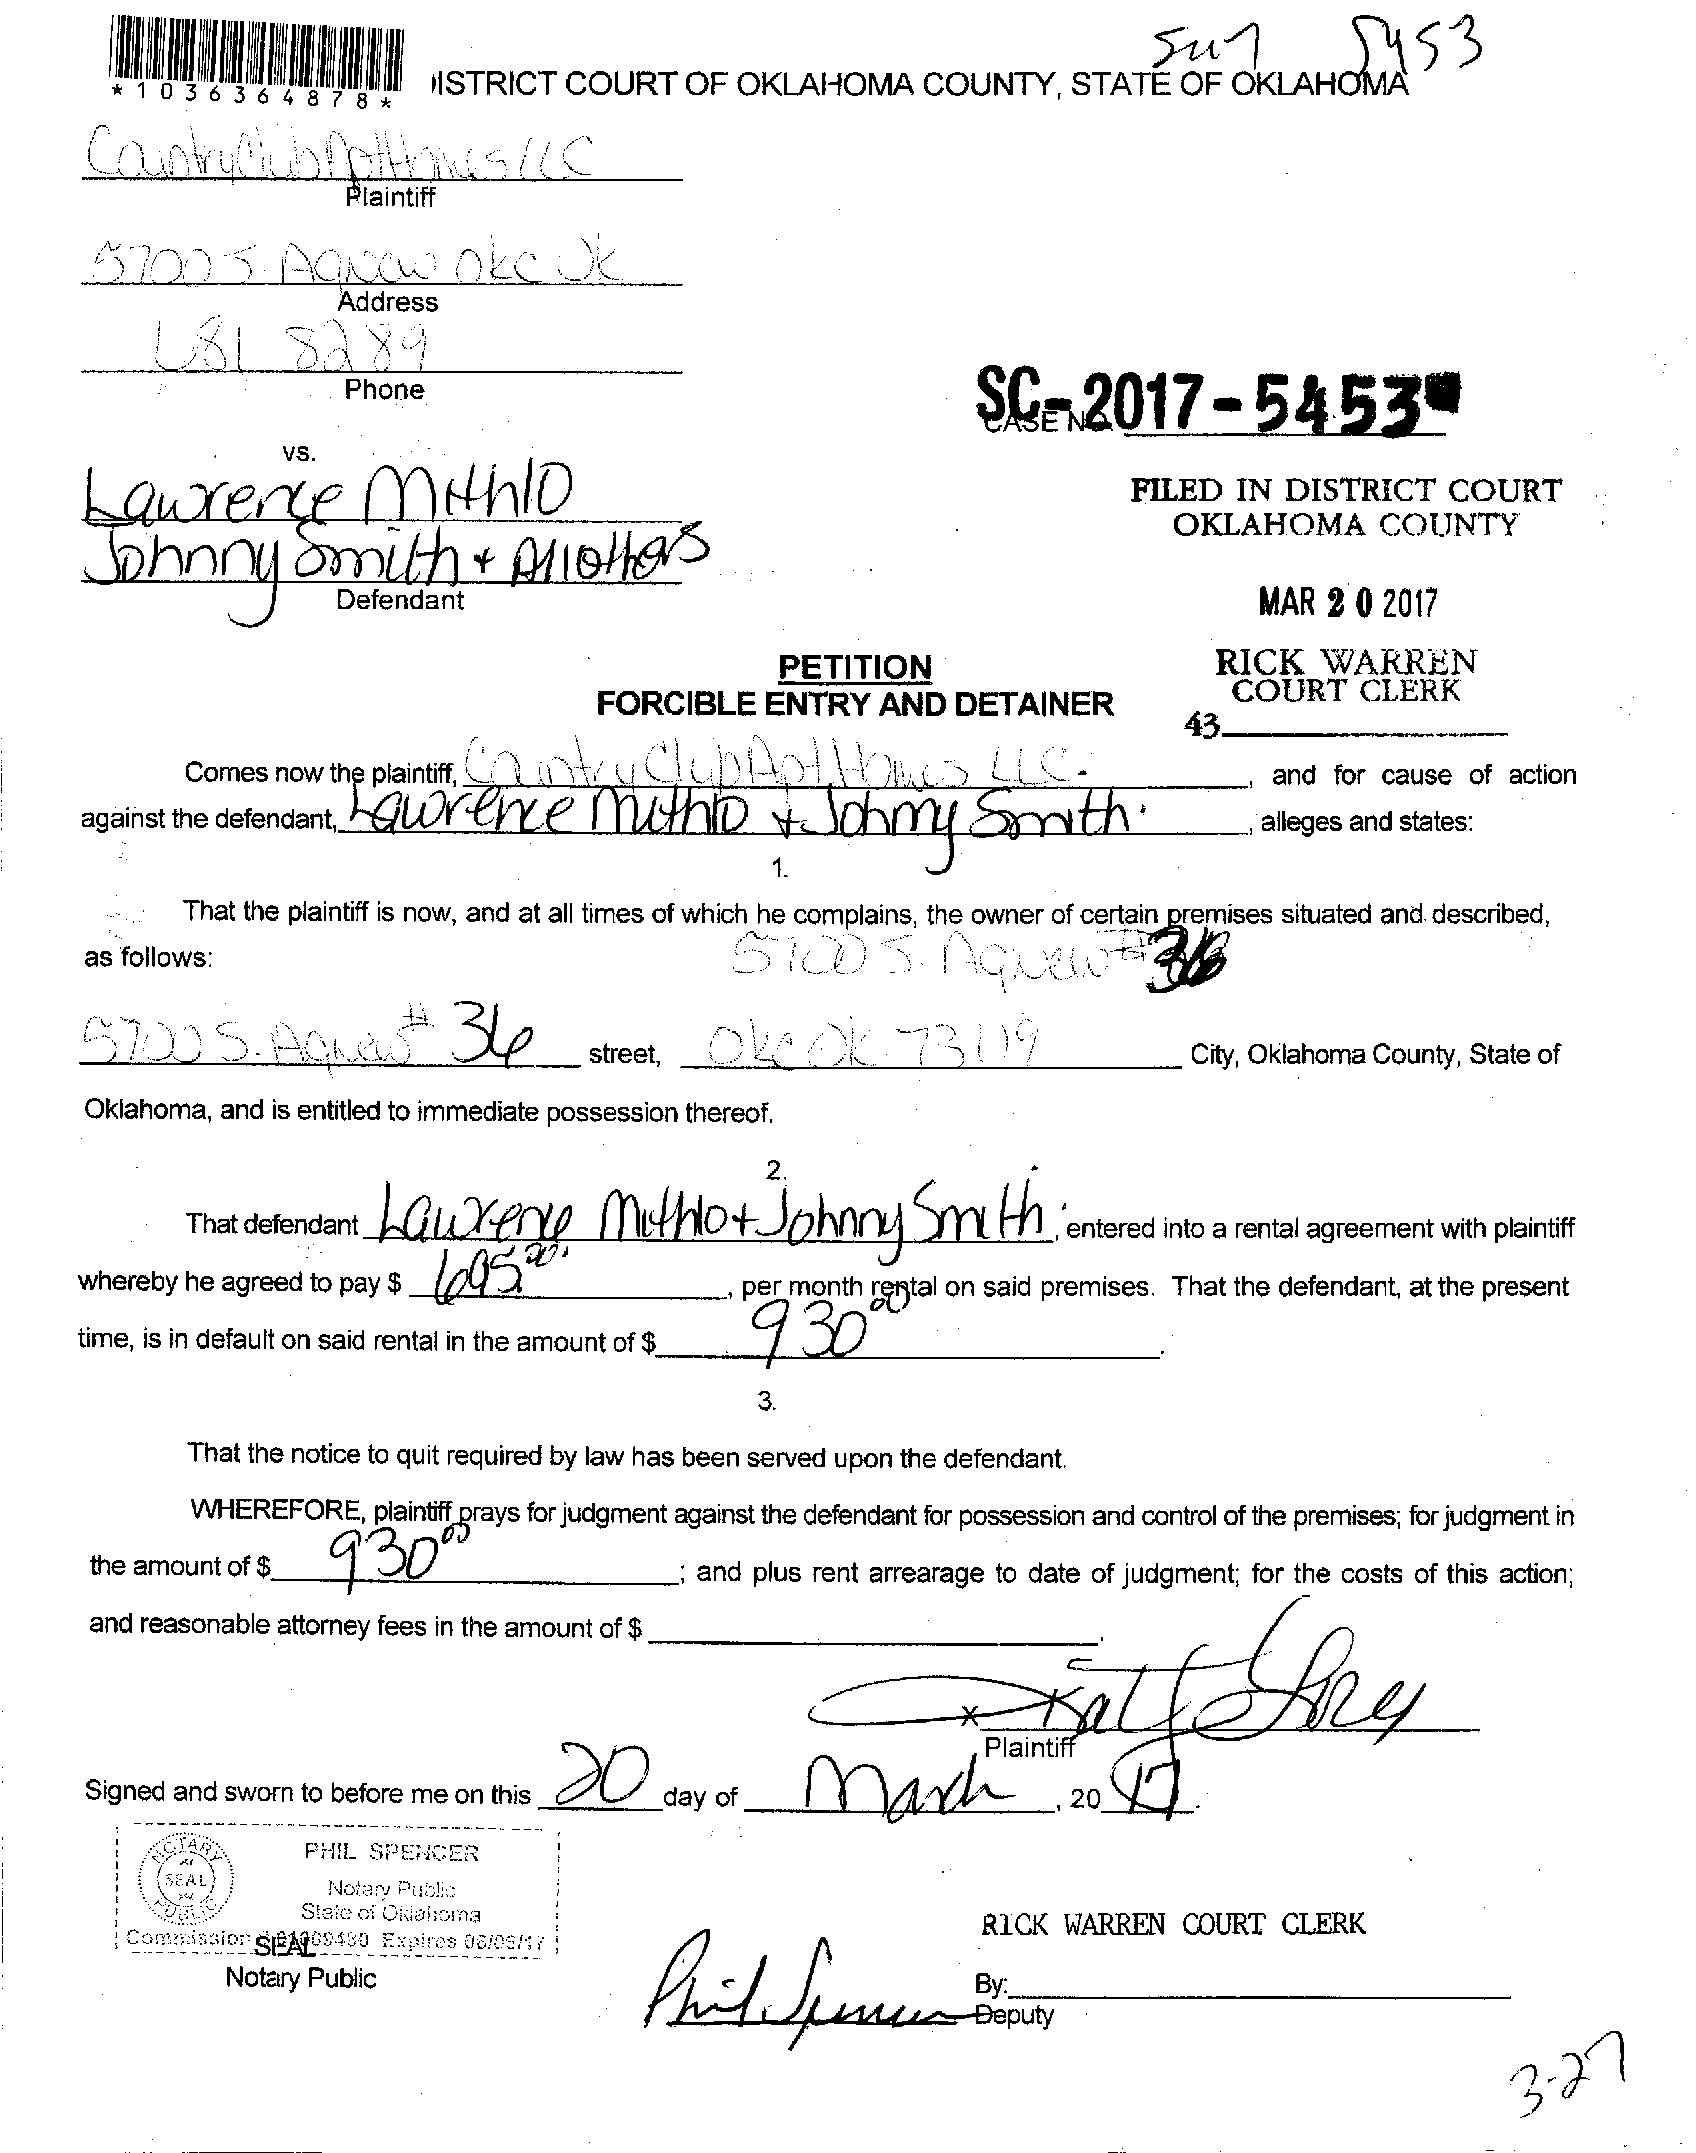 5453
*1036364878*
ISTRICT COURT OF OKLAHOMA COUNTY, STATE OF OKLAHOMA
CountryClub Apt Homes LLC
Plaintiff
5700 S. Agnew OKC OK
Address
681 8289
Phone
SC-2017-5453
CASE NO.
vs.
Lawrence Mithlo
Johnny Smith + All others
Defendant
FILED IN DISTRICT COURT
OKLAHOMA COUNTY
MAR 20 2017
RICK WARREN
COURT CLERK
43
PETITION
FORCIBLE ENTRY AND DETAINER
Comes now the plaintiff, Country Club Apt Homes LLC. , and for cause of action
against the defendant, Lawrence Mithlo + Johnny Smith , alleges and states:
1.
That the plaintiff is now, and at all times of which he complains, the owner of certain premises situated and described,
as follows: 5700 S. Agnew # 36
5700 S. Agnew # 36 street, OKC OK 73119 City, Oklahoma County, State of
Oklahoma, and is entitled to immediate possession thereof.
2.
That defendant Lawrence Mithlo + Johnny Smith, entered into a rental agreement with plaintiff
whereby he agreed to pay $ 695.00 , per month rental on said premises. That the defendant, at the present
time, is in default on said rental in the amount of $ 930 00 .
3.
That the notice to quit required by law has been served upon the defendant.
WHEREFORE, plaintiff prays for judgment against the defendant for possession and control of the premises; for judgment in
the amount of $ 930 00 ; and plus rent arrearage to date of judgment; for the costs of this action;
and reasonable attorney fees in the amount of $ .
x
Plaintiff
Signed and sworn to before me on this 20 day of March , 20 17.
NOTARY SEAL PUBLIC
PHIL SPENCER
Notary Public
State of Oklahoma
Commission # 01009430 Expires 06/05/17
SEAL
Notary Public
RICK WARREN COURT CLERK
Phil Spencer
By:
Deputy
3-27